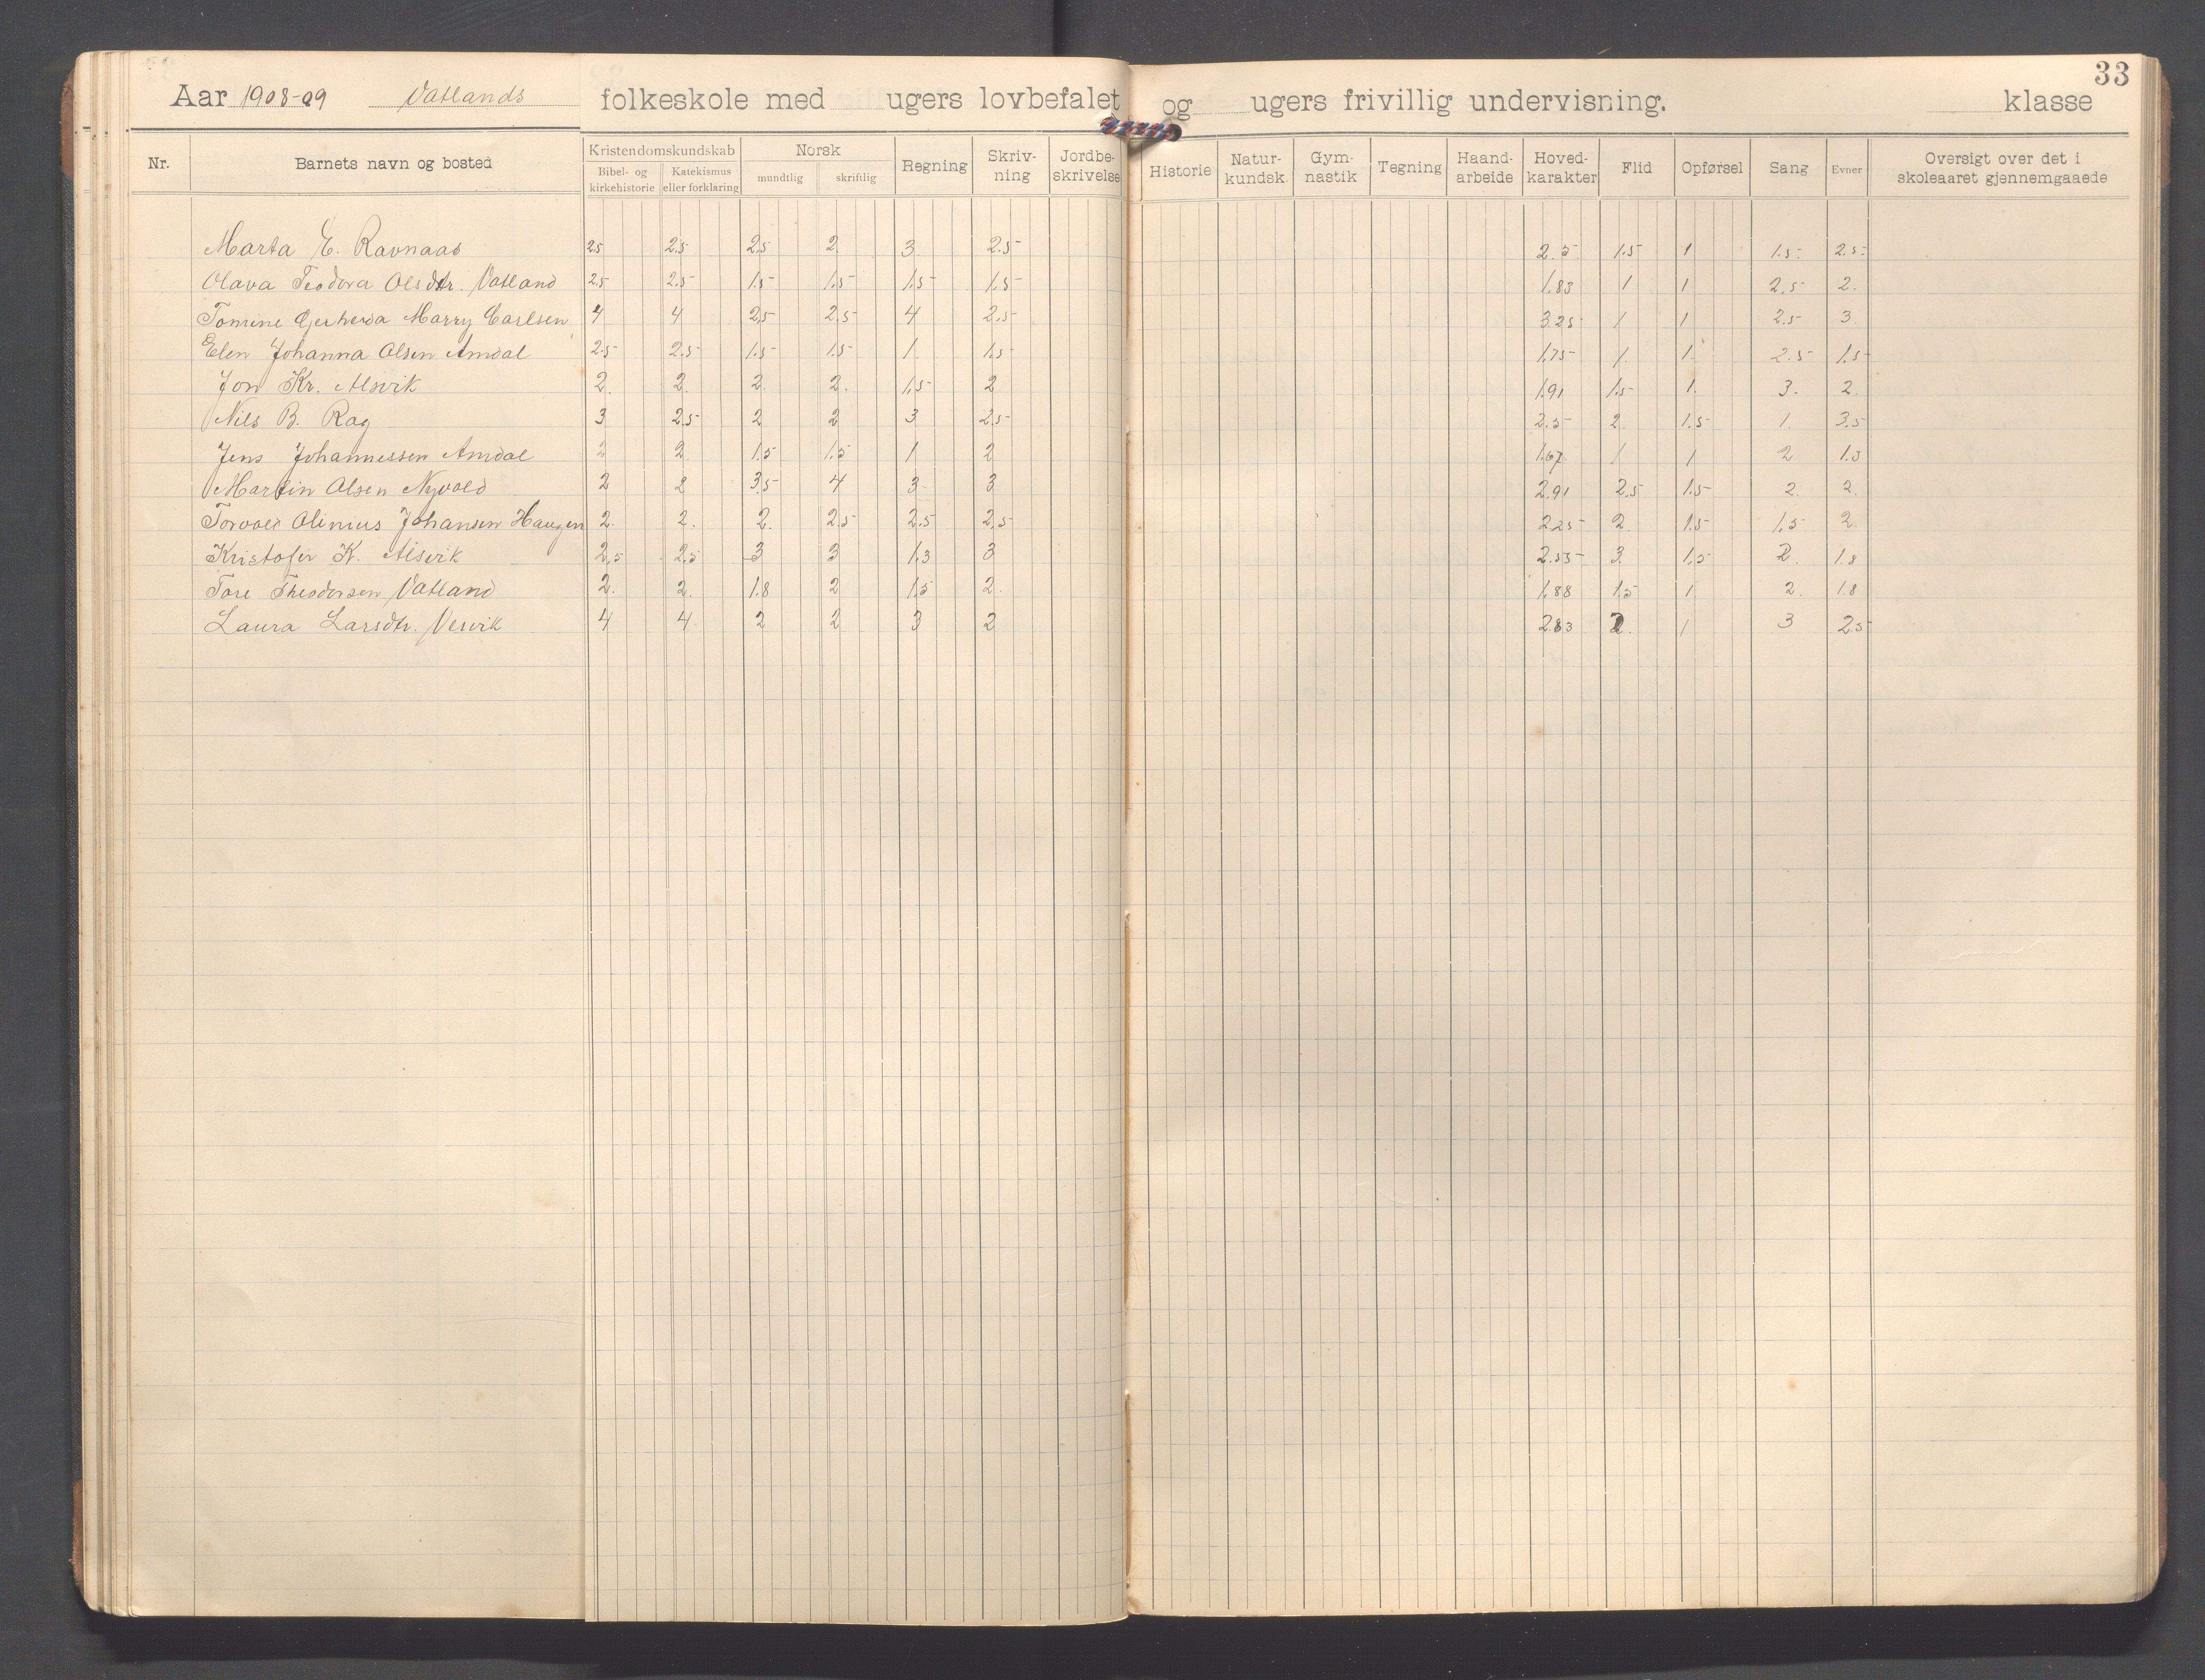 33
Aar 1908-09 Vatlands folkeskole med ugers lovbefalet og ugers frivillig undervisning. klasse
Nr. Barnets navn og bosted Kristendomskundskab Norsk Regning Skriv-ning Jordbe-skrivelse Historie Natur-kundsk. Gym-nastik Tegning Haand-arbeide Hoved-karakter Flid Opførsel Sang Evner Oversigt over det i skoleaaret gjennemgaaede
Bibel- og kirkehistorie Katekismus eller forklaring mundtlig skriftlig
Marta E. Ravnaas 2.5 2.5 2.5 2 3 2.5 2.5 1.5 1 1.5 2.5
Olava Teodora Olsdtr. Vatland 2.5 2.5 1.5 1.5 1.5 1.5 1.83 1 1 2.5 2.
Tomine Marry Carlsen 4 4 2.5 2.5 4 2.5 3.25 1 1 2.5 3
Elen Johanna Olsen Amdal 2.5 2.5 1.5 1.5 1 1.5 1.75 1. 1. 2.5 1.5
Jon Kr. Alsvik 2. 2. 2. 2. 1.5 2 1.91 1.5 1. 3. 2.
Nils B. Rag 3 2.5 2 2 3 2.5 2.5 2. 1.5 1. 3.5
Jens Johannessen Amdal 2 2 1.5 1.5 1 2 1.67 1 1 2 1.3
Martin Olsen Nyvold 2 2 3.5 4 3 3 2.91 2.5 1.5 2. 2.
Torvald Olinius Johansen Haugen 2. 2. 2. 2.5 2.5 2.5 2.25 2. 1.5 1.5 2.
Kristofer K. Alsvik 2.5 2.5 3 3 1.3 3 2.55 3. 1.5 2. 1.8
Tore Theodorsen Vatland 2. 2. 1.8 2 1.5 2. 1.88 1.5 1 2. 1.8
Laura Larsdtr. Vesvik 4 4 2 2 3 2 2.83 2. 1 3 2.5